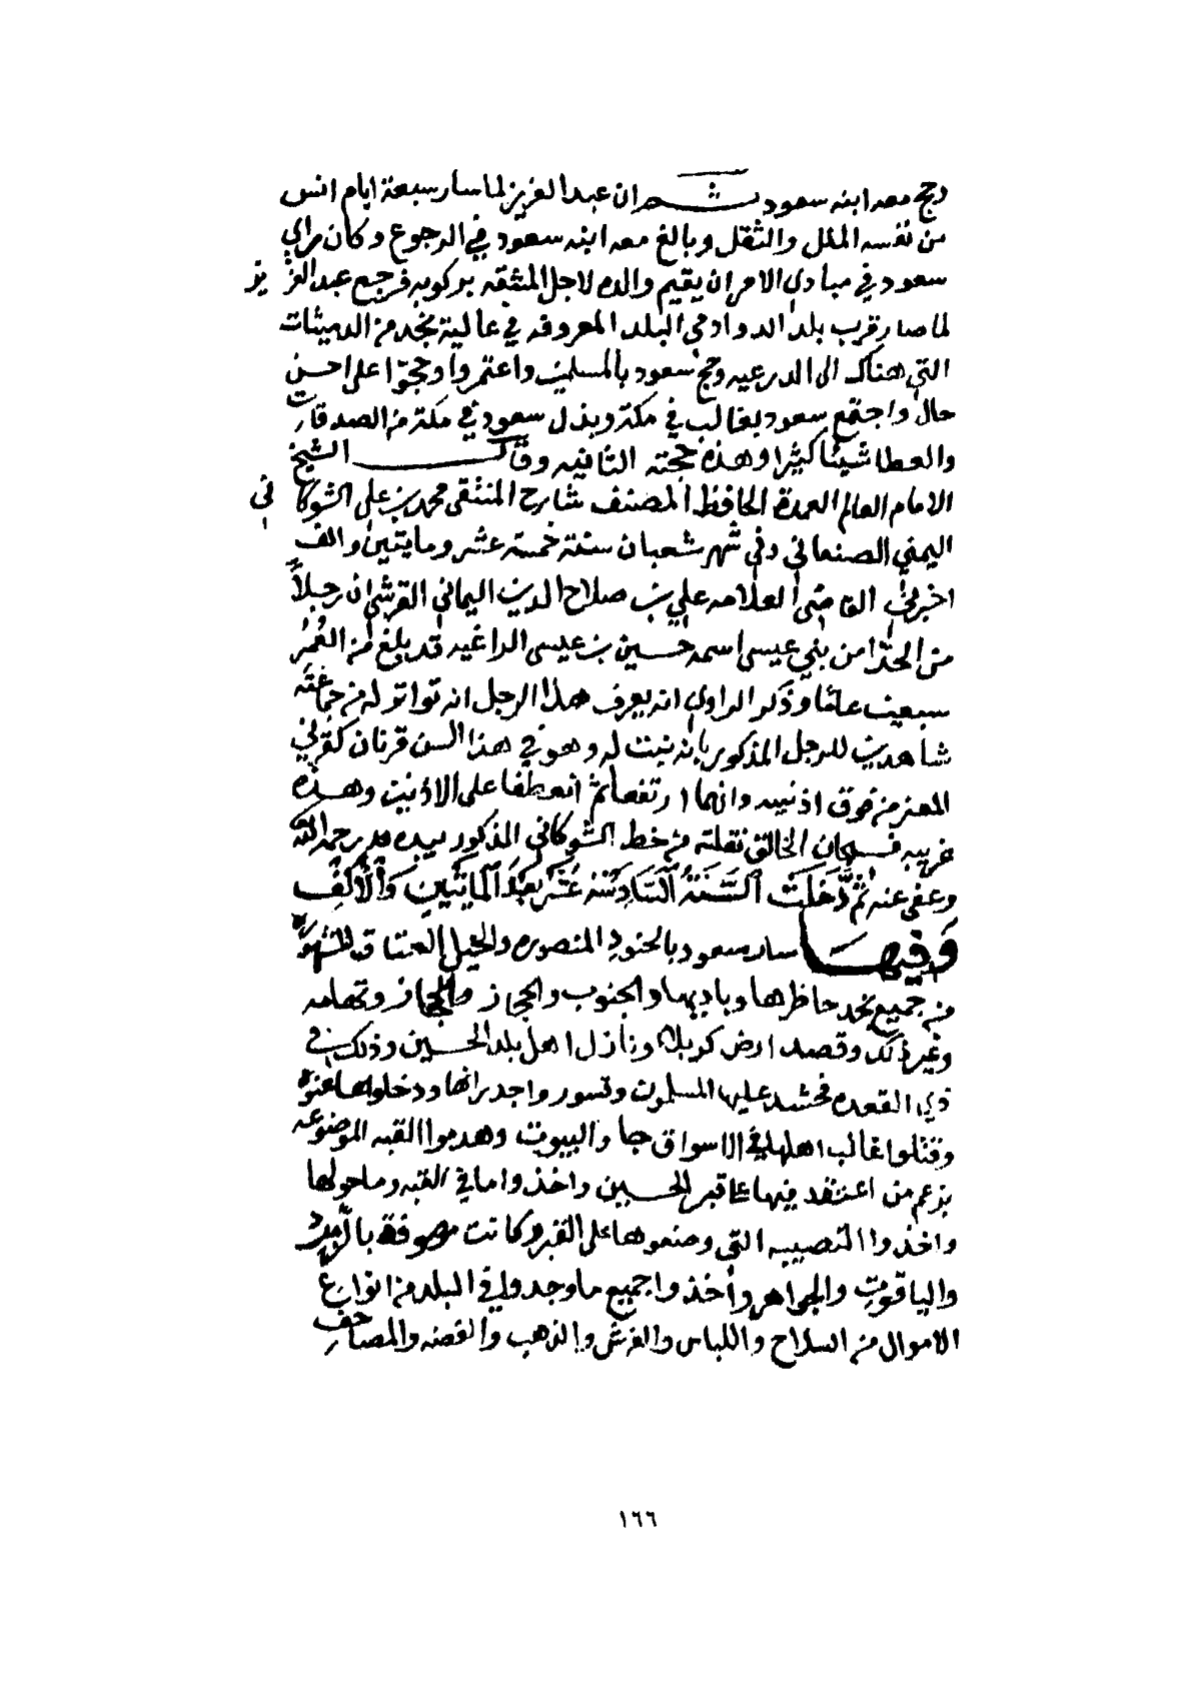 وحج معه ابنه سعود ثم ان عبدالعزيز لما سار سبعة ايام انس
من نفسه الملل والثقل وبالغ معه ابنه سعود في الرجوع وكان مراي
سعود في مبادي الامر ان يقيم والده لاجل المشقه بركوبه فرجع عبدالعزيز
لما صار قرب بلد الدوادمي البلد المعروفه في عالية نجد من
التي هناك الى الدرعيه وحج سعود بالمسلمين واعتمروا وحجوا على احسن
حال واجتمع سعود بغالب في مكة وبذل سعود في مكة من الصدقات
والعطا شيئا كثيرا وهذه حجته الثانيه وقال الشيخ
الامام العالم العمدة الحافظ المصنف شارح المنتقى محمد بن علي الشوكاني
اليمني الصنعاني وفي شهر شعبان سنة خمسة عشر ومايتين والف
اخبرني القاضي العلامه علي بن صلاح الدين اليماني القرشي ان رجلاً
من الحدا من بني عيسى اسمه حسين بن عيسى الراغيه قد بلغ من العُمُر
سبعين عاما وذكر الراوي انه يعرف هذا الرجل انه تواتر له من جماعته
شاهدين للرجل المذكور بانه نبت له وهو في هذا السن قرنان كقرني
المعز من فوق اذنيه وانهما ارتفعا ثم انعطفا على الاذنين وهذه
غريبه فسبحان الخالق نقلته من خط الشوكاني المذكور بيده رحمه الله
وعفى عنه ثُمَّ دَخَلَتْ السَّنَةُ السَّادِسَةُ عَشَرَ بَعْدَ الْمَايَتَيْنِ وَالْأَلْفِ
وَفِيهَا سار سعود بالجنود المنصوره والخيل العتاق المشهوره
من جميع نجد حاظرها وباديها والجنوب والحجاز وتهامه
وغير ذلك وقصد ارض كربلا ونازل اهل بلد الحسين وذلك في
ذي القعده فحشد عليها المسلمون وتسوروا جدرانها ودخلوها عنوه
وقتلوا غالب اهلها في الاسواق والبيوت وهدموا القبه الموضوعه
بزعم من اعتقد فيها على قبر الحسين واخذوا ما في القبه وما حولها
واخذوا النصيبه التي وضعوها على القبر وكانت مرصوفة بالزمرد
والياقوت والجواهر وأخذوا جميع ما وجدوا في البلد من انواع
الاموال من السلاح واللباس والفرش والذهب والفضه والمصاحف
١٦٦